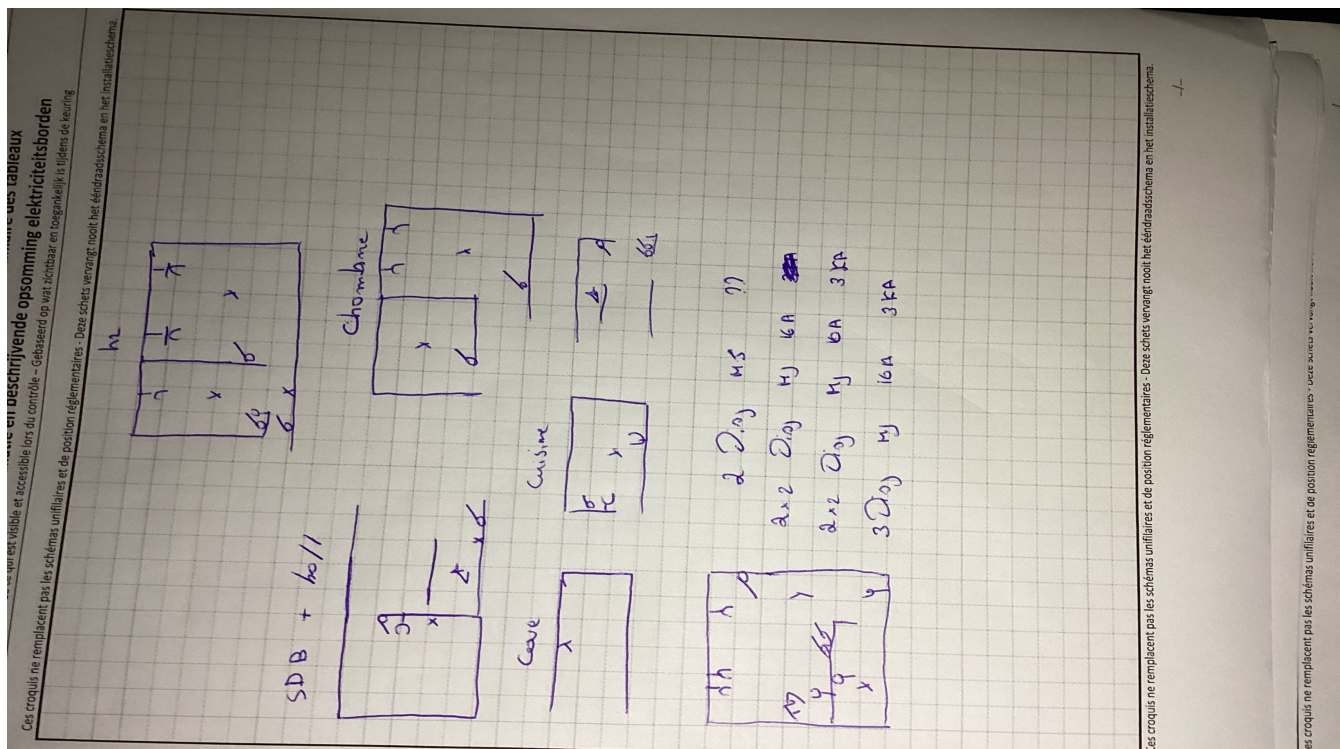 en beschrijvende opsomming elektriciteitsborden
qui est visible et accessible lors du contrôle – Gebaseerd op wat zichtbaar en toegankelijk is tijdens de keuring
Ces croquis ne remplacent pas les schémas unifilaires et de position réglementaires - Deze schets vervangt nooit het ééndraadsschema en het installatieschema.
SDB + hall
Chambre
Cave
Cuisine
2 Disj ??
2x2 Disj MJ 16A
2x2 Disj MJ 16A 3KA
3 Disj MJ 16A 3KA
Ces croquis ne remplacent pas les schémas unifilaires et de position réglementaires - Deze schets vervangt nooit het ééndraadsschema en het installatieschema.
-/-
Ces croquis ne remplacent pas les schémas unifilaires et de position réglementaires -